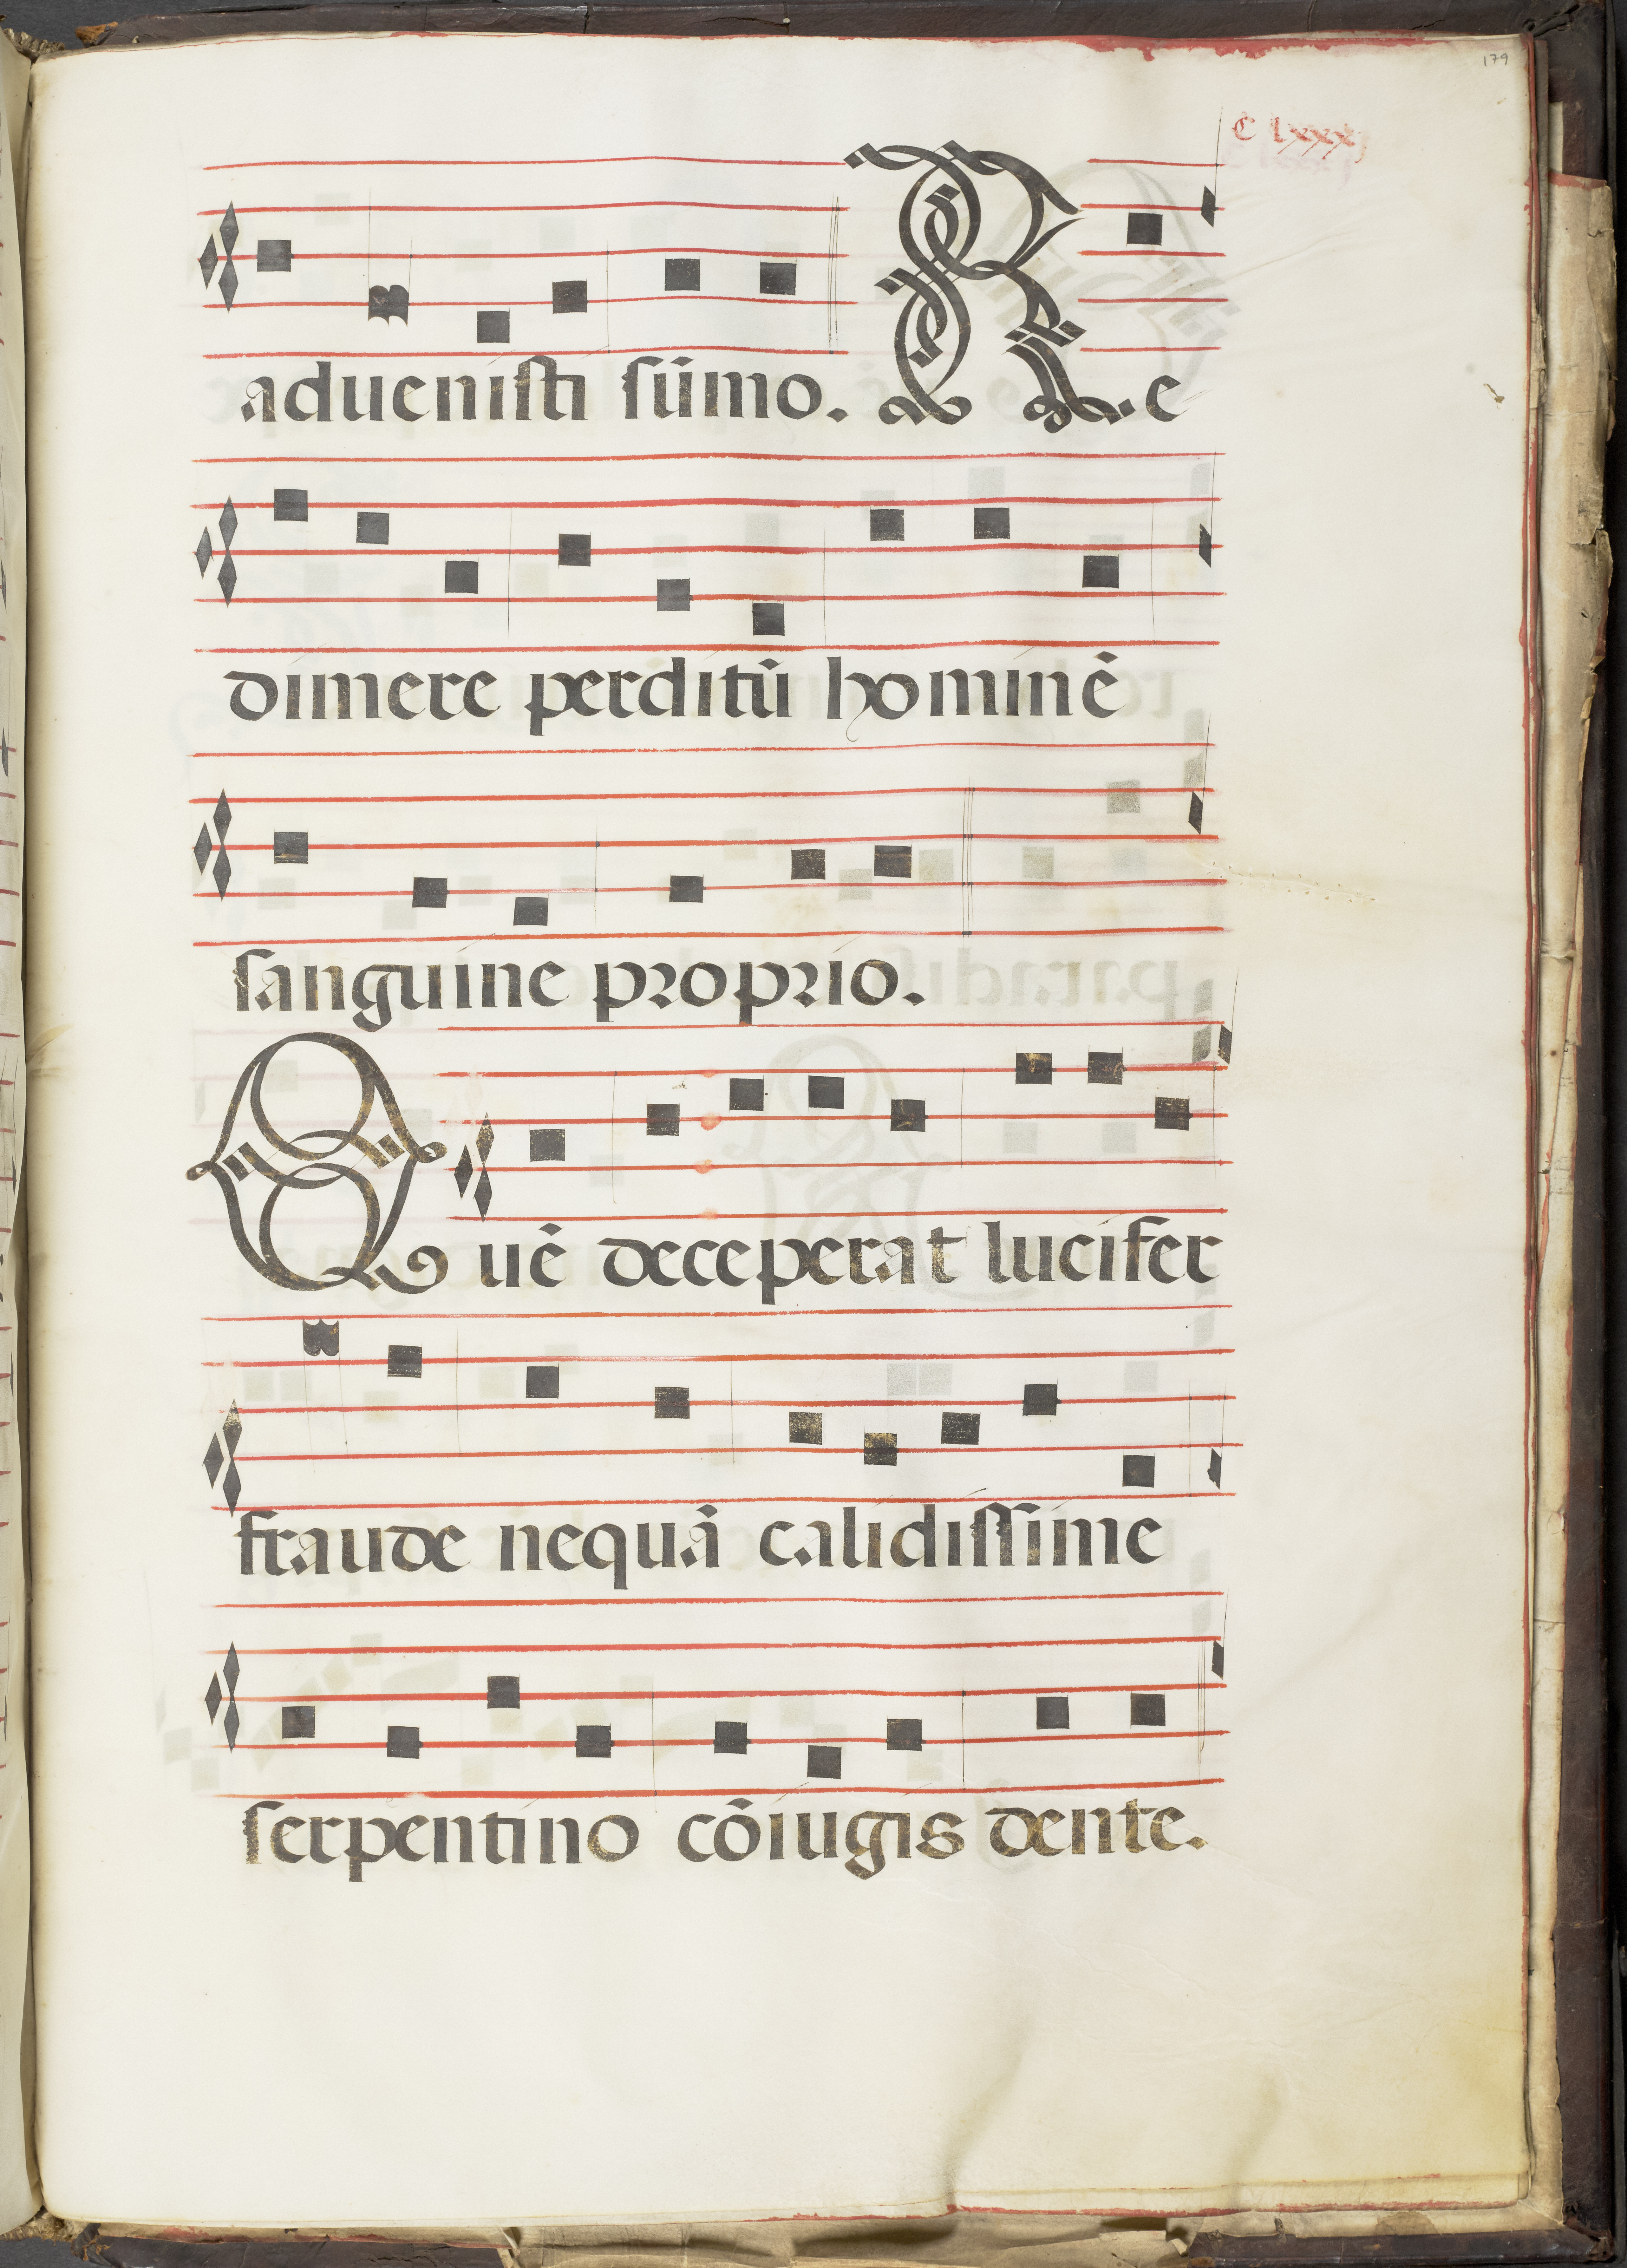 179
C lxxxj
aduenisti sūmo. Re
dimere perditū hominē
sanguine proprio.
Quē deceperat lucifer
fraude nequā calidissime
serpentino cōiugis dente.